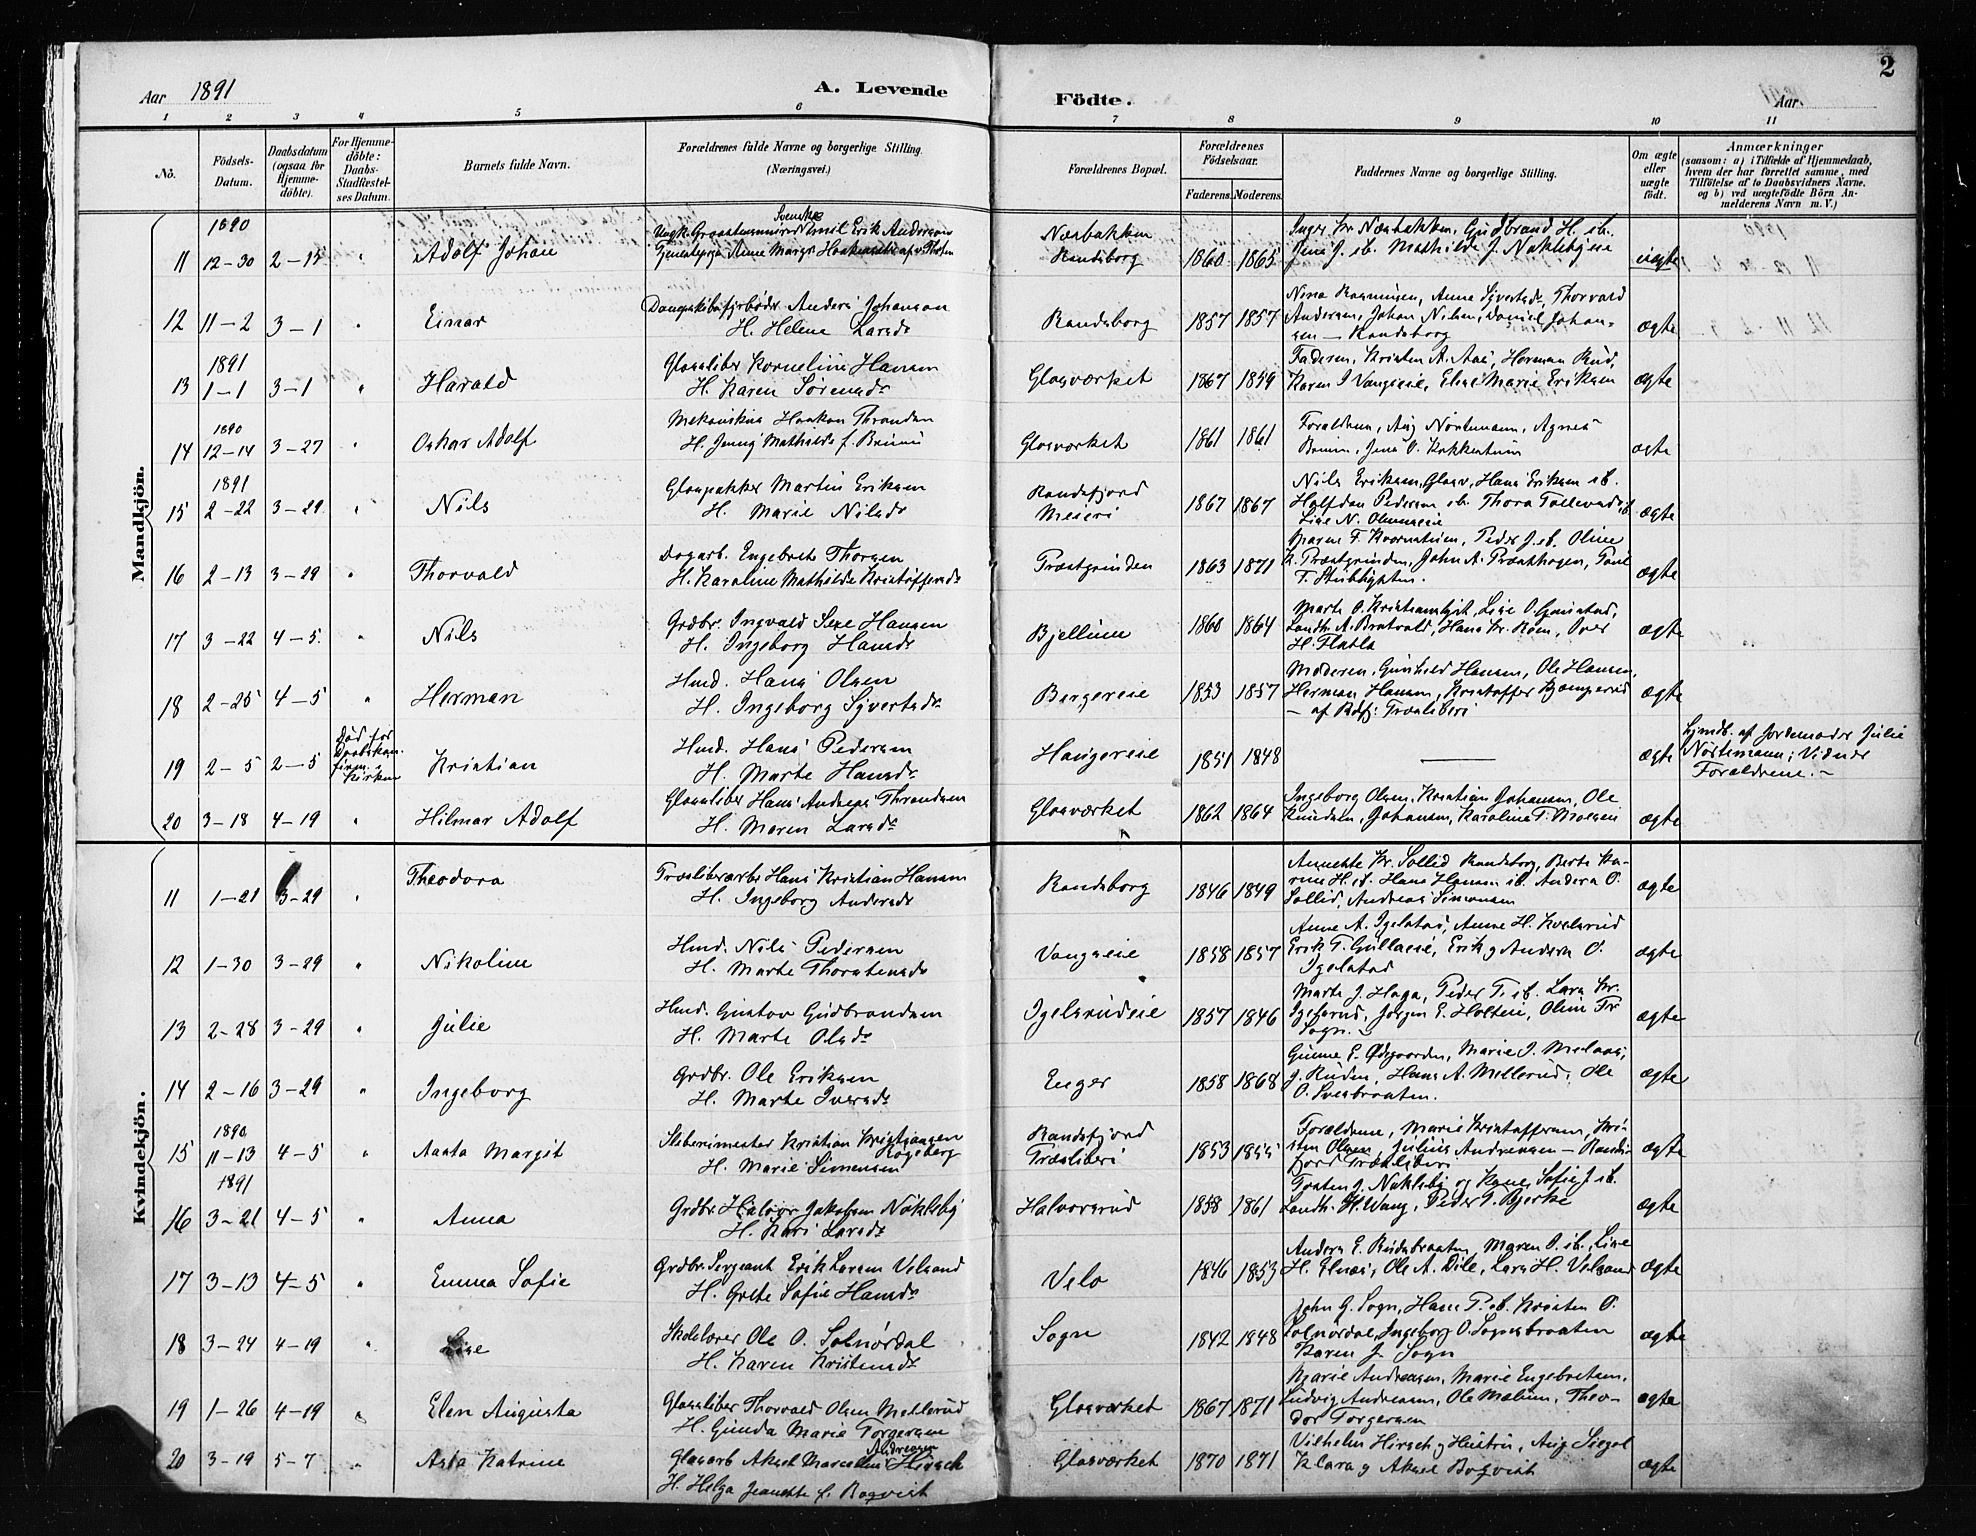 2
Aar 1891 A. Levende Födte. Aar
1 2 3 4 5 6 7 8 9 10 11
No. Födsels-Datum. Daabsdatum (ogsaa for Hjemme-döbte). For Hjemme-döbte: Daabs-Stadfestel-ses Datum. Barnets fulde Navn. Forældrenes fulde Navne og borgerlige Stilling. (Næringsvei.) Forældrenes Bopæl. Forældrenes Födselsaar. Faderens. Moderens. Faddernes Navne og borgerlige Stilling. Om ægte eller uægte födt. Anmærkninger (saasom: a) i Tilfælde af Hjemmedaab, hvem der har forrettet samme, med Tilföielse af to Daabsvidners Navne. og b) ved uægtefödte Börn An-melderens Navn m. V.)
Mandkjön.
1890
11 12-30 2-15 " Adolf Johan Ungk. Emil Erik Anderson Næsbakken Randsborg 1860 1865 uægte
12 11-2 3-1 " Einar Anders Johansen
H. Helene Larsdr Randsborg 1857 1857 Nina Rasmusen, Anne Syvertsdr, Thorvald
Andersen, Johan Nilsen, Daniel Johan-
sen - Randsborg ægte
1891
13 1-1 3-1 " Harald Glassliber Kornelius Hansen
H. Karen Sörensdr Glasværket 1867 1859 Faderen, Kristen A. Aas, Herman Rud,
Karen J Vangseie, Elise Marie Eriksen ægte
1890
14 12-14 3-27 " Oskar Adolf Mekanikus Haakon Throndsen
H. Jenny Mathilde f. Bruun Glasværket 1861 1861 Forældrene, Aug Nortmann, Agnes
Bruun, Jens O. ægte
1891
15 2-22 3-29 " Nils Glaspakker Martin Eriksen
H. Marie Nilsdr Randsfjord
Meieri 1867 1867 Nils Eriksen, Glasv, Hans Eriksen ib.
Halfdan Pedersen ib. Thora
Lise N. ægte
16 2-13 3-29 " Thorvald Dagarb. Engebret Thorsen
H. Karoline Mathilde Kristoffersdr Præstgrinden 1863 1871 Peder J. ib. Oline
K. Præstgrinden, John A. Præsthagen, Paul
T. ægte
17 3-22 4-5 " Nils Grdbr. Ingvald Hansen
H. Ingeborg Hansdr Bjellum 1860 1864 Marte O. Lise O.
Landh. A. Bratvold, Hans Kr. Iver
H. Flatla ægte
18 2-25 4-5 " Herman Husmd. Hans Olsen
H. Ingeborg Syvertsdr Bergereie 1853 1857 Moderen, Gunhild Hansen, Ole Hansen,
Herman Hansen, Kristoffer
- af Rdfj: Træsliberi ægte
19 2-5 2-5 Död for
Daabskon-
firm. i
Kirken Kristian Husmd. Hans Pedersen
H. Marte Hansdr Haugereie 1851 1848 — ægte Hjmdb. af Jordemoder Julie
Nortsmann; Vidner
Forældrene. -
20 3-18 4-19 " Hilmar Adolf Glassliber Hans Andreas Throndsen
H. Maren Larsdr Glasværket 1862 1864 Ingeborg Olsen, Kristian Johansen, Ole
Knudsen, Johansen, Karoline T. ægte
Kvindekjön.
11 1-21 3-29 " Theodora Træsliberarb. Hans Kristian Hansen
H. Ingeborg Andersdr Randsborg 1846 1849 Annette Kr. Sollid Randsborg, Berte Ka-
rine H. ib. Hans Hansen ib. Anders O.
Sollid, Andreas Simensen ægte
12 1-30 3-29 " Nikoline Husmd. Nils Pedersen
H. Marte Thorstensdr Vangseie 1858 1857 Anne A. Igelstad, Anne H.
Erik T. Gullaeie, Erik og Anders O.
Igelstad ægte
13 2-28 3-29 " Julie Husmd. Gustav Gudbrandsen
H. Marte Olsdr Igelsrudeie 1857 1846 Marte J. Haga, Peder T. ib. Lars Kr.
Igelsrud, Jörgen E. Holteie, Oline Fr
Sogn. - ægte
14 2-16 3-29 " Ingeborg Grdbr. Ole Eriksen
H. Marte Iversdr Enger 1858 1868 Gunne E. Ødegaarden, Marie J.
J. Ruden, Hans A. Mellerud, Ole
O. ægte
1890
15 11-13 4-5 " Aasta Margit Sliberimester Kristian Kristiansen
H. Marie Simensen Randsfjord
Træsliberi 1853 1855 Forældrene, Marie Kristoffersen, Kri-
sten Olsen, Julius Andreasen - Rands-
fjord Træsliberi ægte
1891
16 3-21 4-5 " Anna Grdbr. Halvor Jakobsen Nökleby
H. Kari Larsdr Halvorsrud 1858 1861 J. Nökleby og Kone, Sofie J. ib.
Landh. H. Wang, Peder O. Bjerke ægte
17 3-13 4-5 " Emma Sofie Grdbr. Sergeant Erik Larsen Velsand
H. Grete Sofie Hansdr Velo 1846 1853 Anders E. Rudsbraaten, Maren O. ib., Lise
H. Elnes, Ole A. Dile, Lars H. Velsand ægte
18 3-24 4-19 " Lise Skolelærer Ole O. Solnördal
H. Karen Kristensdr Sogn 1842 1848 John G. Sogn, Hans P. ib. Kristen O.
Solnördal, Ingeborg O. Sognsbraaten
Karen J. Sogn ægte
19 1-26 4-19 " Elen Augusta Glassliber Thorvald Olsen Mellerud
H. Gunda Marie Torgersen Glasværket 1867 1871 Marie Andreasen, Marie Engebretsen,
Ludvig Andreasen, Ole Mælum, Theo-
dor Torgersen ægte
20 3-19 5-7 " Asta Katrine Glasarb Aksel Marcelius Andreasen Hirsch
H. Helga Jeanette f. Boqvist Glasværket 1870 1871 Vilhelm Hirsch og Hustru, Aug Siegel
Klara og Aksel Boqvist ægte